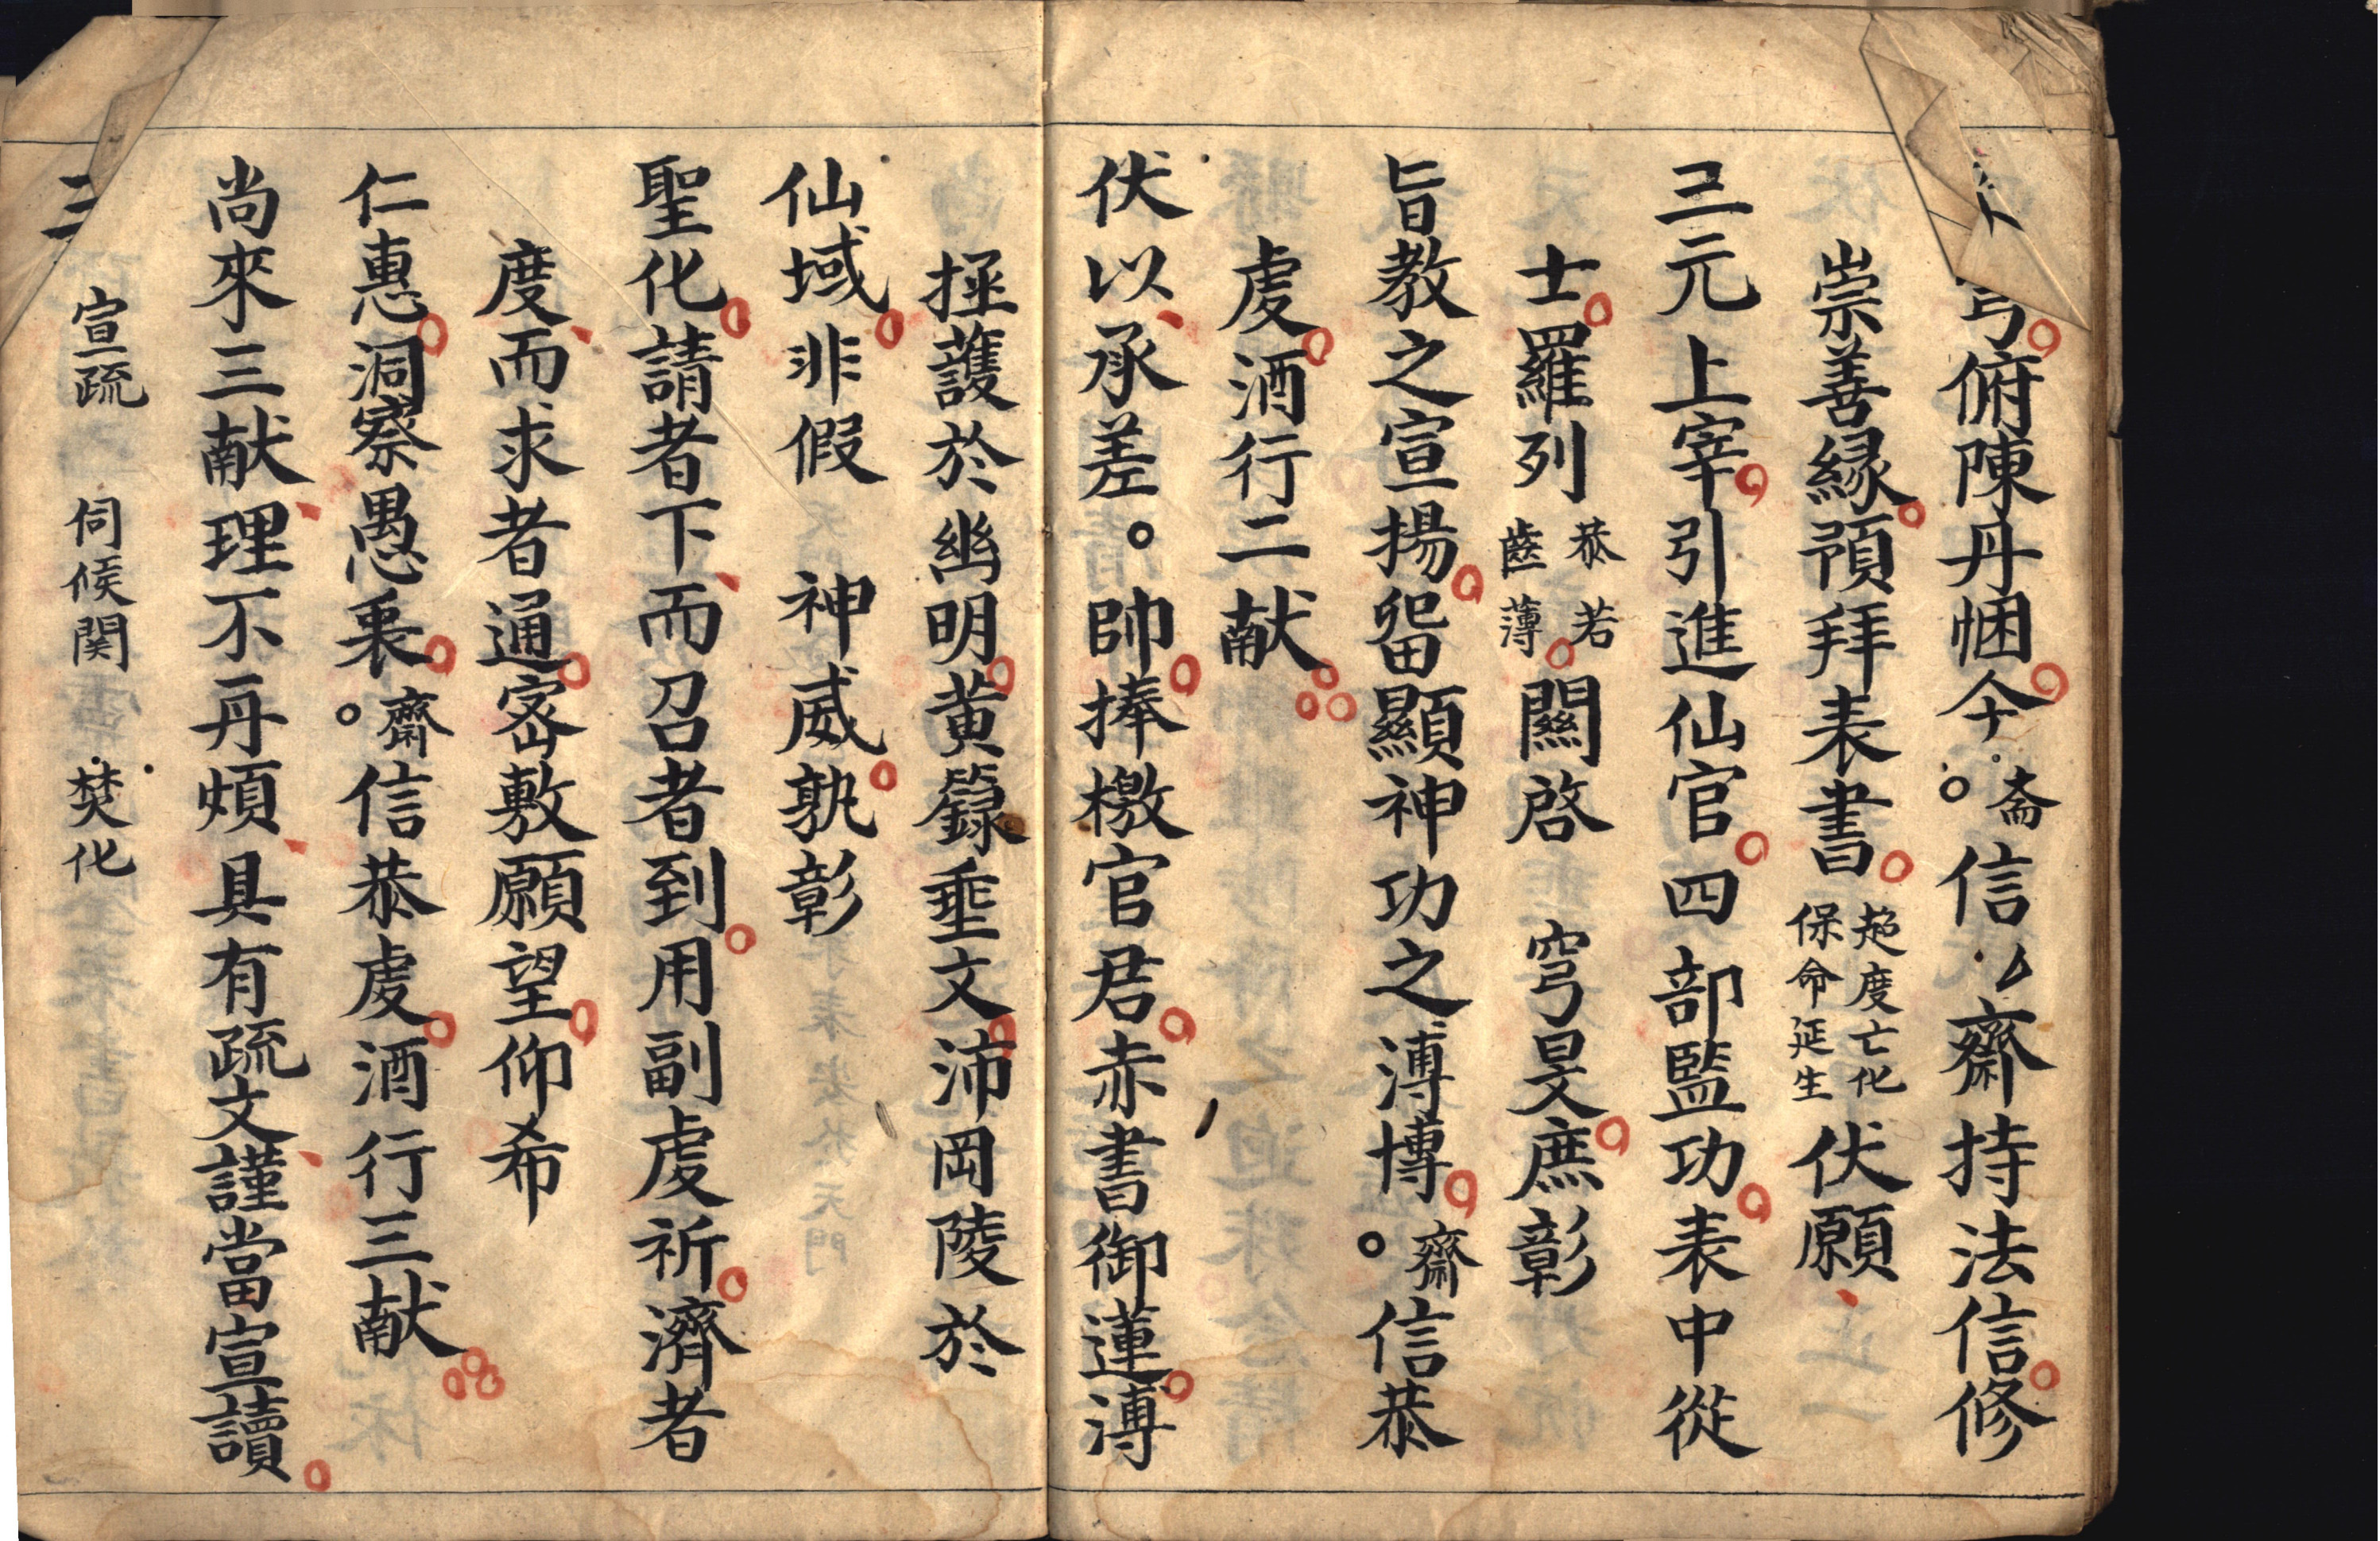 穹俯陳丹悃今○齋信厶齋持法信修
崇善緣預拜表書超度亡化保命延生伏願
三元上宰引進仙官四部監功表中從
士羅列恭若齒薄關啓 穹旻庶彰
旨教之宣揚畱顯神功之溥博○齋信恭
虔酒行二献
伏以承差○帥捧檄官君赤書御運溥
拯護於幽明黄籙垂文沛岡陵於
仙域非假 神威孰彰
聖化請者下而召者到用副虔祈濟者
度而求者通宻敷願望仰希
仁惠洞察愚衷○齋信恭虔酒行三献
尚來三献理不再煩具有疏文謹當宣讀
宣疏 伺候関 焚化